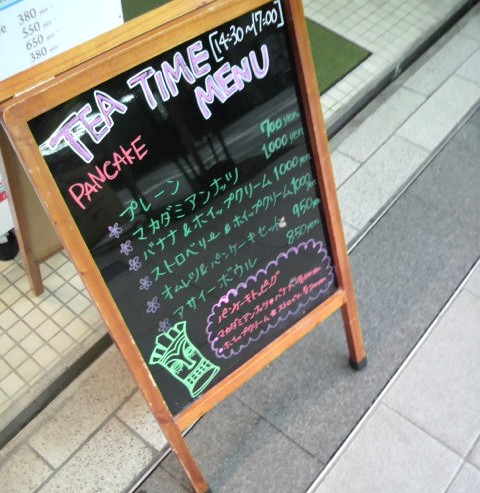 380
550
650
380
TEA TIME [14:30~17:00]
MENU
PANCAKE
プレーン 700yen
マカダミアンナッツ 1,000yen
バナナ&ホイップクリーム 1000yen
ストロベリー&ホイップクリーム 1000yen
オムレツ&パンケーキセット 950yen
アサイーボウル 850yen
パンケーキトッピング
マカダミアンナッツ・バナナ
ホイップクリーム